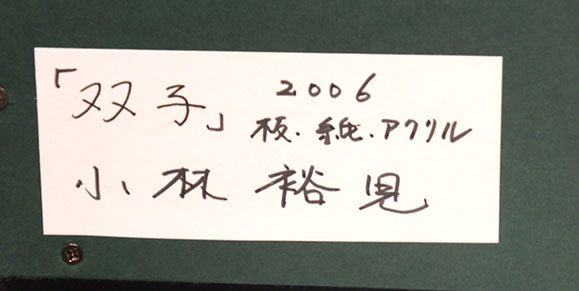 「双子」 2006
板.紙.アクリル
小林裕児